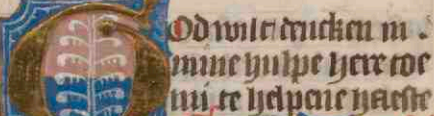 God wilt dencken in
mine hulpe here toe
mi te helpene haeste